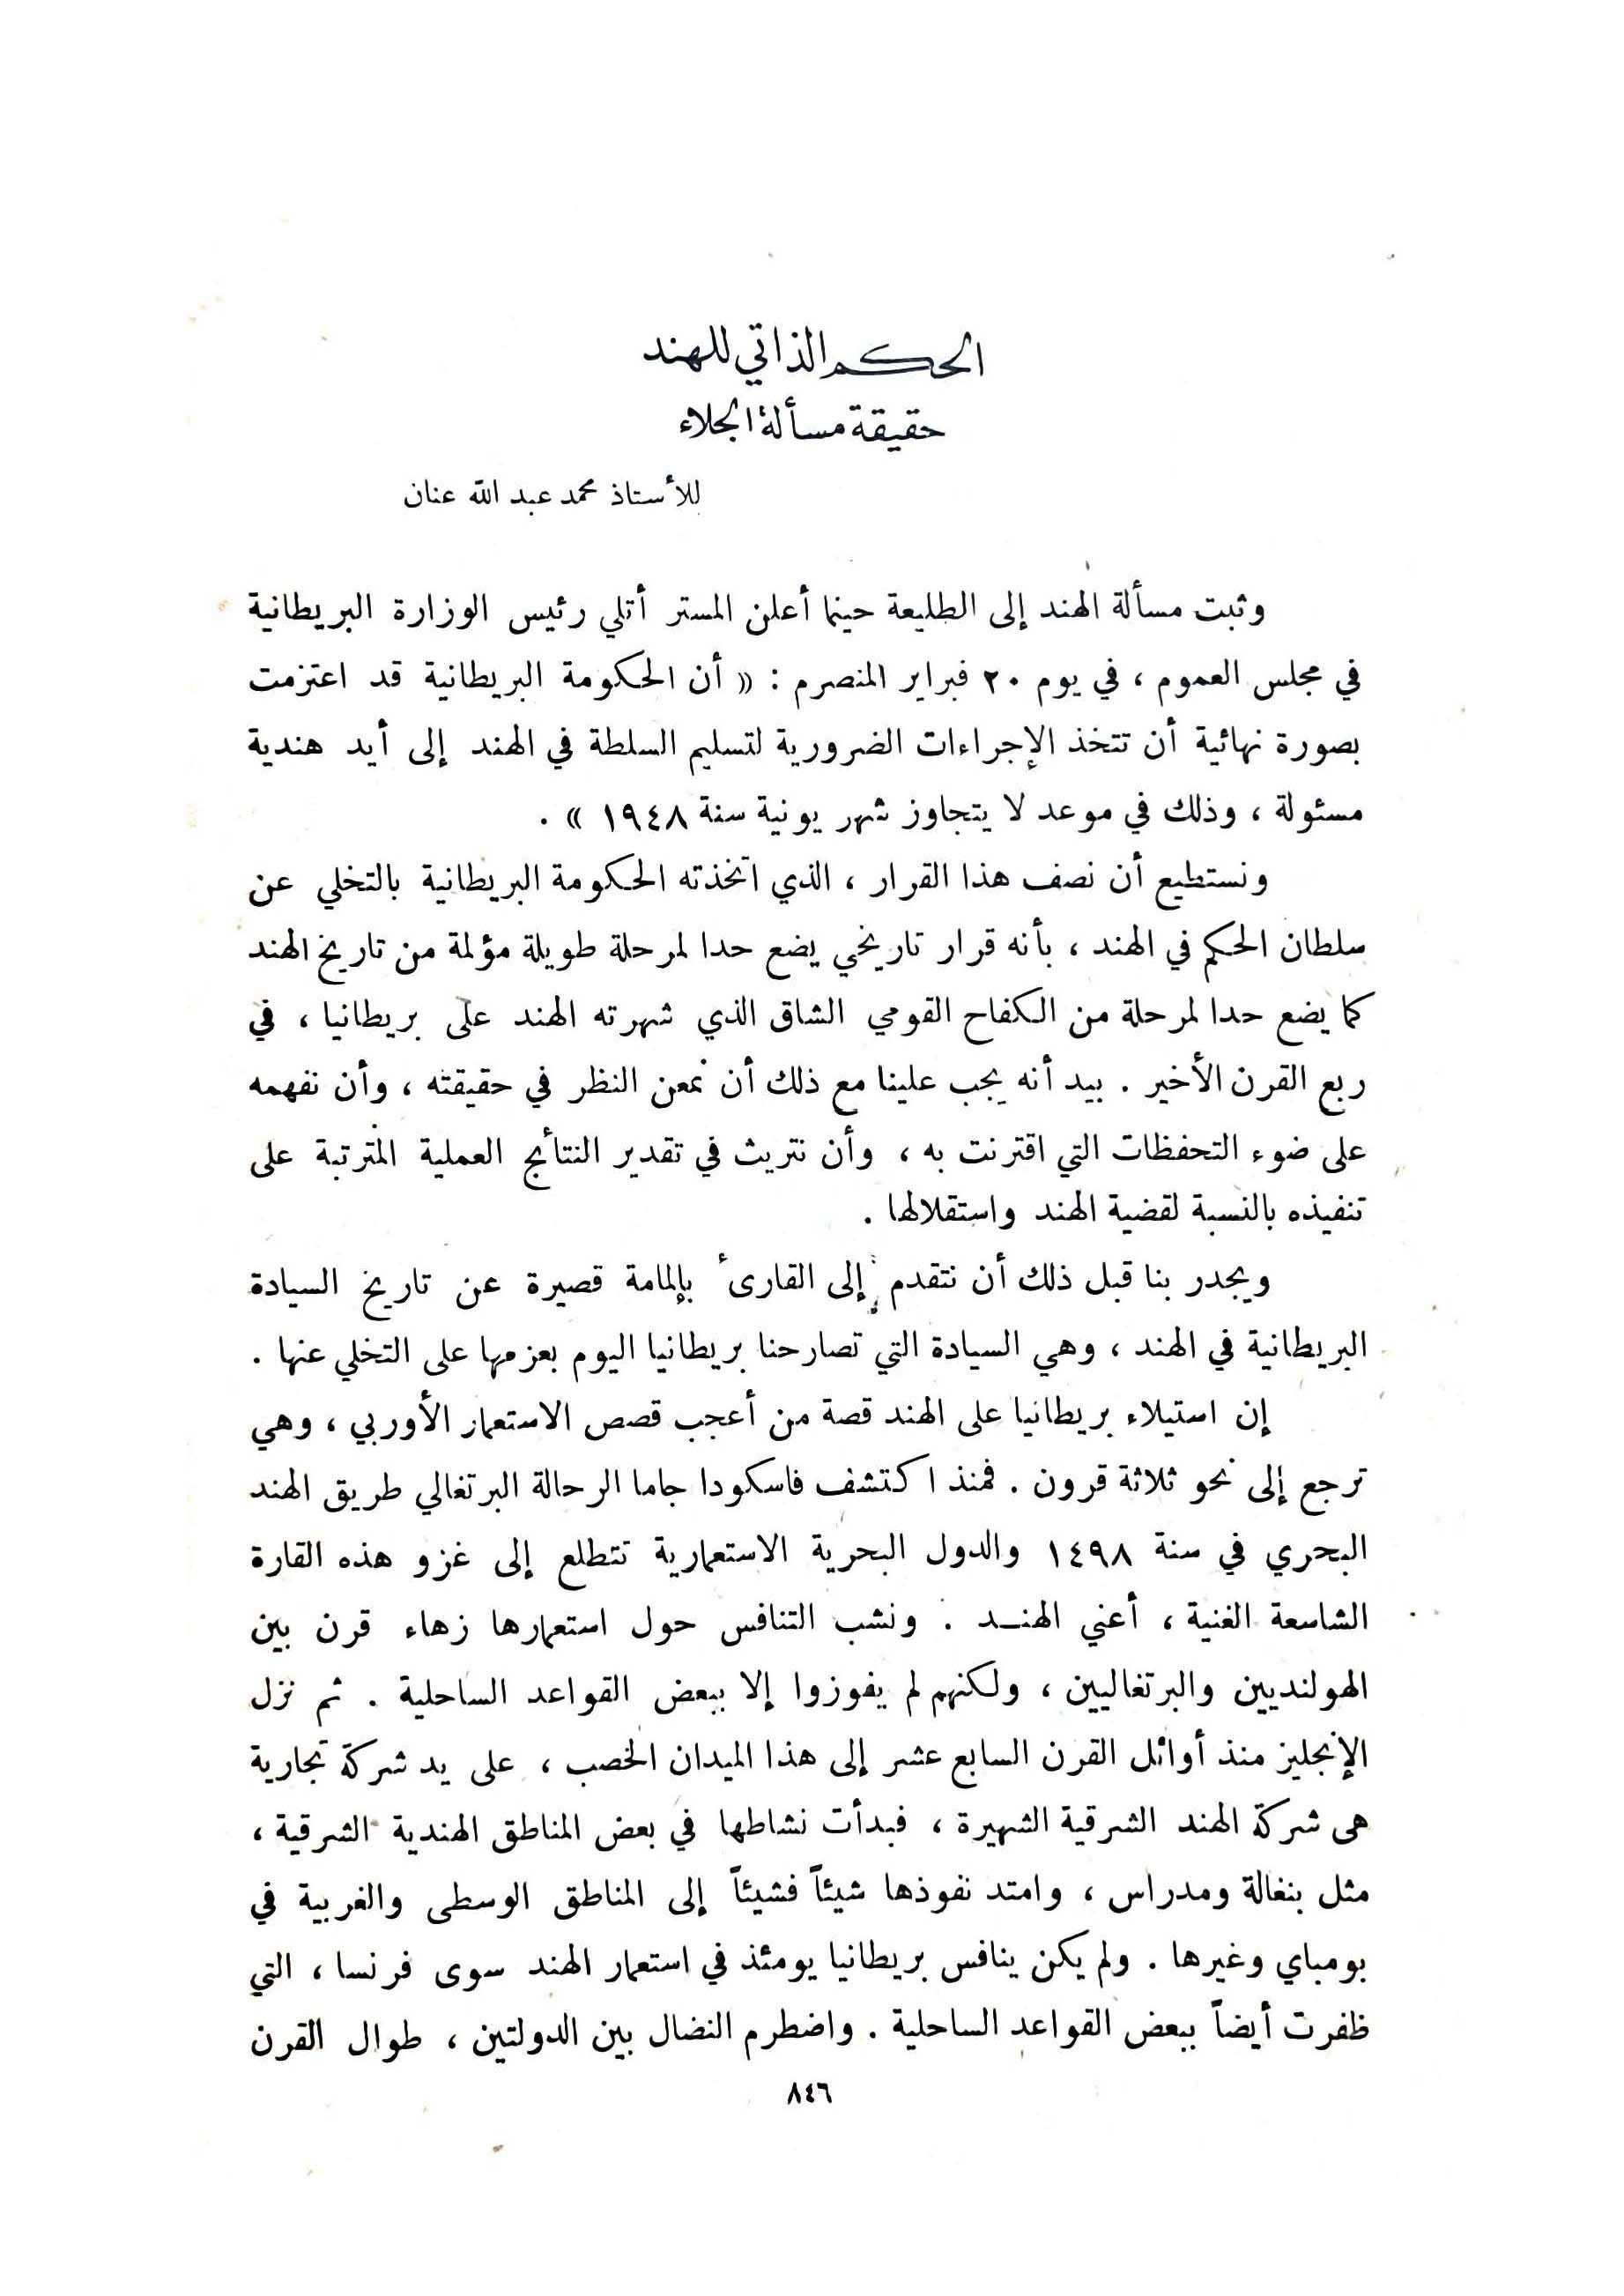 الحكم الذاتي للهند
حقيقة مسألة الجلاء
للأستاذ محمد عبد الله عنان
وثبت مسألة الهند إلى الطليعة حينما أعلن المستر أتلي رئيس الوزارة البريطانية
في مجلس العموم ، في يوم ٢٠ فبراير المنصرم : « أن الحكومة البريطانية قد اعتزمت
بصورة نهائية أن تتخذ الإجراءات الضرورية لتسليم السلطة في الهند إلى أيد هندية
مسئولة ، وذلك في موعد لا يتجاوز شهر يونية سنة ١٩٤٨ » .
ونستطيع أن نصف هذا القرار ، الذي اتخذته الحكومة البريطانية بالتخلي عن
سلطان الحكم في الهند ، بأنه قرار تاريخي يضع حدا لمرحلة طويلة مؤلمة من تاريخ الهند
كما يضع حدا لمرحلة من الكفاح القومي الشاق الذي شهرته الهند على بريطانيا ، في
ربع القرن الأخير . بيد أنه يجب علينا مع ذلك أن نمعن النظر في حقيقته ، وأن نفهمه
على ضوء التحفظات التي اقترنت به ، وأن نتريث في تقدير النتائج العملية المترتبة على
تنفيذه بالنسبة لقضية الهند واستقلالها .
ويجدر بنا قبل ذلك أن نتقدم إلى القارىء بإلمامة قصيرة عن تاريخ السيادة
البريطانية في الهند ، وهي السيادة التي تصارحنا بريطانيا اليوم بعزمها على التخلي عنها .
إن استيلاء بريطانيا على الهند قصة من أعجب قصص الاستعمار الأوربي ، وهي
ترجع إلى نحو ثلاثة قرون . فمنذ اكتشف فاسكودا جاما الرحالة البرتغالي طريق الهند
البحري في سنة ١٤٩٨ والدول البحرية الاستعمارية تتطلع إلى غزو هذه القارة
الشاسعة الغنية ، أعني الهنـد . ونشب التنافس حول استعمارها زهاء قرن بين
الهولنديين والبرتغاليين ، ولكنهم لم يفوزوا إلا ببعض القواعد الساحلية . ثم نزل
الإنجليز منذ أوائل القرن السابع عشر إلى هذا الميدان الخصب ، على يد شركة تجارية
هى شركة الهند الشرقية الشهيرة ، فبدأت نشاطها في بعض المناطق الهندية الشرقية ،
مثل بنغالة ومدراس ، وامتد نفوذها شيئاً فشيئاً إلى المناطق الوسطى والغربية في
بومباي وغيرها . ولم يكن ينافس بريطانيا يومئذ في استعمار الهند سوى فرنسا ، التي
ظفرت أيضاً ببعض القواعد الساحلية . واضطرم النضال بين الدولتين ، طوال القرن
٨٤٦